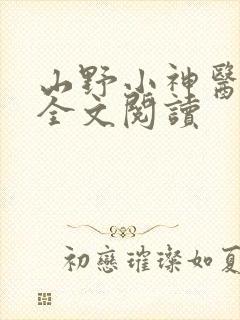 山野小神醫
全文閱讀
初戀璀璨如夏